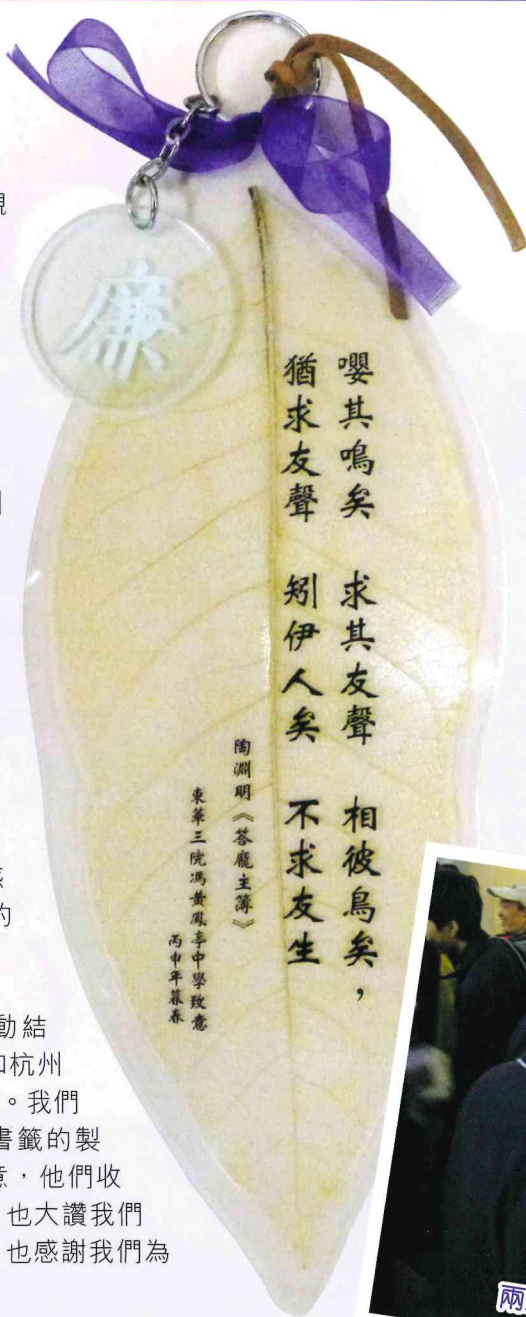 廉
嚶其鳴矣　求其友聲　相彼鳥矣，
猶求友聲　矧伊人矣　不求友生
陶淵明《答龐主簿》
東華三院馮黃鳳亭中學致意
丙申年暮春
的
動結
和杭州
。我們
書籤的製
意，他們收
也大讚我們
也感謝我們為
兩